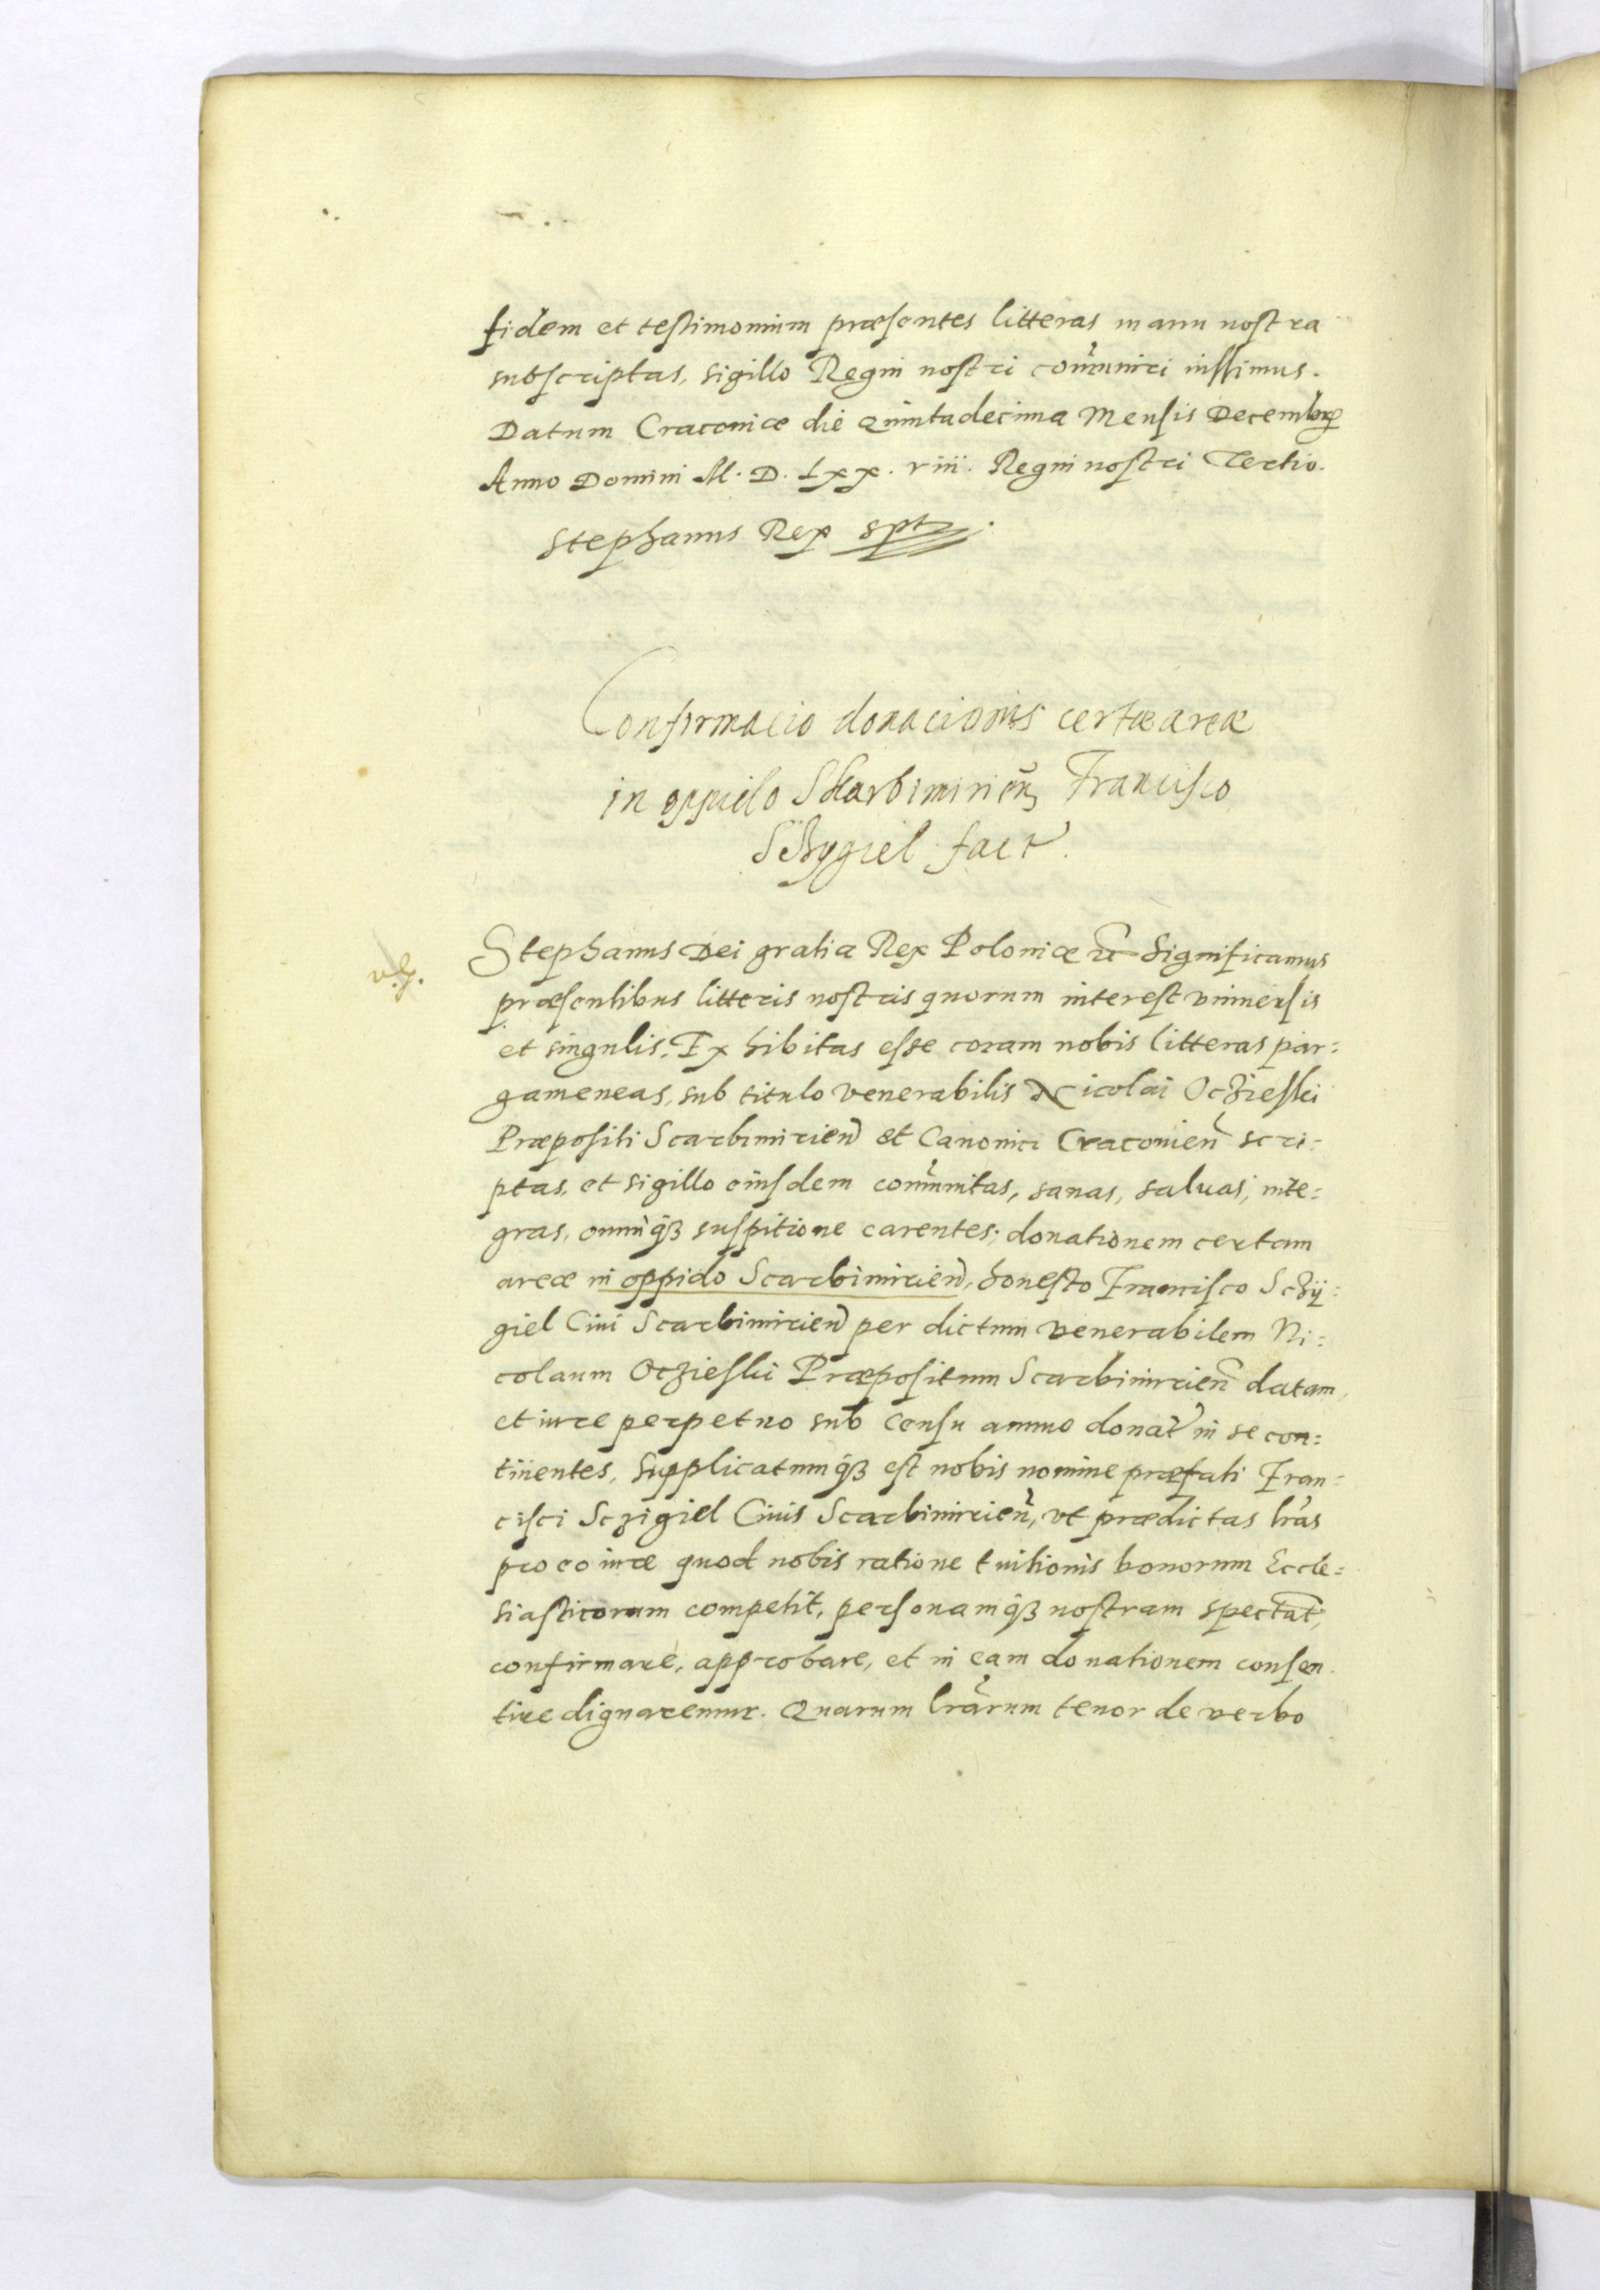 fidem et testimonium præsentes litteras manu nostra
subscriptas, sigillo Regni nostri com̃uniri iussimus.
Datum Cracoviæ die Quintadecima Mensis Decembr
Anno Domini M. D. Lxx. viii. Regni nostri Tertio.
Stephanus Rex spt
Confirmacio donacionis certæ areæ
in oppido Skarbimirien Francisco
Sczygiel fact.
Stephanus Dei gratia Rex Poloniæ etc Significamus
præsentibus litteris nostris quorum interest vniuersis
et singulis, Exhibitas esse coram nobis litteras par=
gameneas, sub titulo venerabilis Nicolai Oczieski
Præpositi Scarbimirien et Canonici Cracovien scri=
ptas, et sigillo eiusdem com̃unitas, sanas, saluas, inte=
gras, omniq₃ suspitione carentes; donationem certam
areæ in oppido Scarbimirien, honesto Francisco Sczÿ=
giel Ciui Scarbimirien per dictum venerabilem Ni=
colaum Oczieski Præpositum Scarbimirien datam,
et iure perpetuo sub censu annuo donat in se con=
tinentes, Supplicatumq₃ est nobis nomine præfati Fran=
cisci Sczigiel Ciuis Scarbimirien, vt prædictas lr̃as
pro eo iure quod nobis ratione tuitionis bonorum Eccle=
siasticorum competit, personamq₃ nostram spectat,
confirmare, approbare, et in eam donationem consen
tire dignaremur. Quarum lr̃arum tenor de verbo